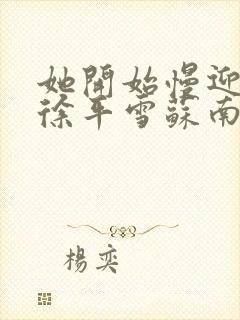 她開始慢迎
徐平雪蘇南
楊奕